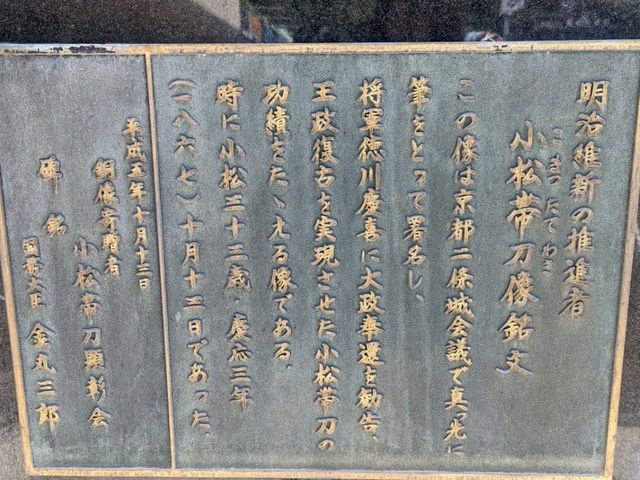 明治維新の推進者
小松帯刀像銘文
こまつたてわき
この像は京都二条城会議で真っ先に
筆をとって署名し、
将軍徳川慶喜に大政奉還を勧告、
王政復古を実現させた小松帯刀の
功績をたゝえる像である。
時に小松三十三歳・慶応三年
(一八六七)十月十三日であった。
平成五年十月十三日
銅像寄贈者
小松帯刀顕彰会
碑銘
国蒂大臣 金丸三郎